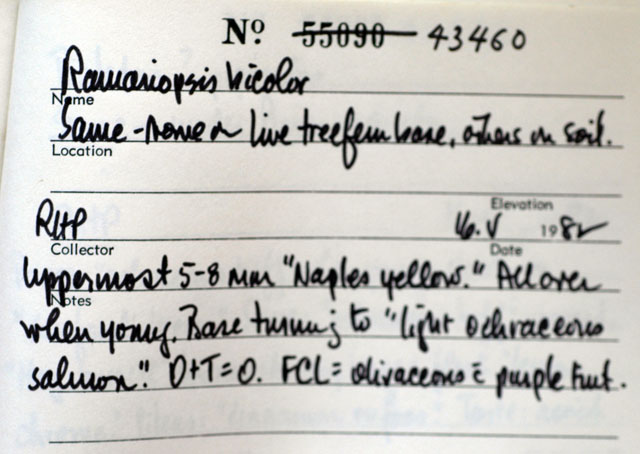 Nº 55090 43460
Ramariopsis bicolor
Name
Same - some on live treefern base, others on soil.
Location
RHP Elevation 16.V 1982
Collector Date
Uppermost 5-8 mm "Naples yellow." All over
Notes
when young. Base turning to "light ochraceous
salmon". O+T=O. FCL= olivaceous c̄ purple tint.